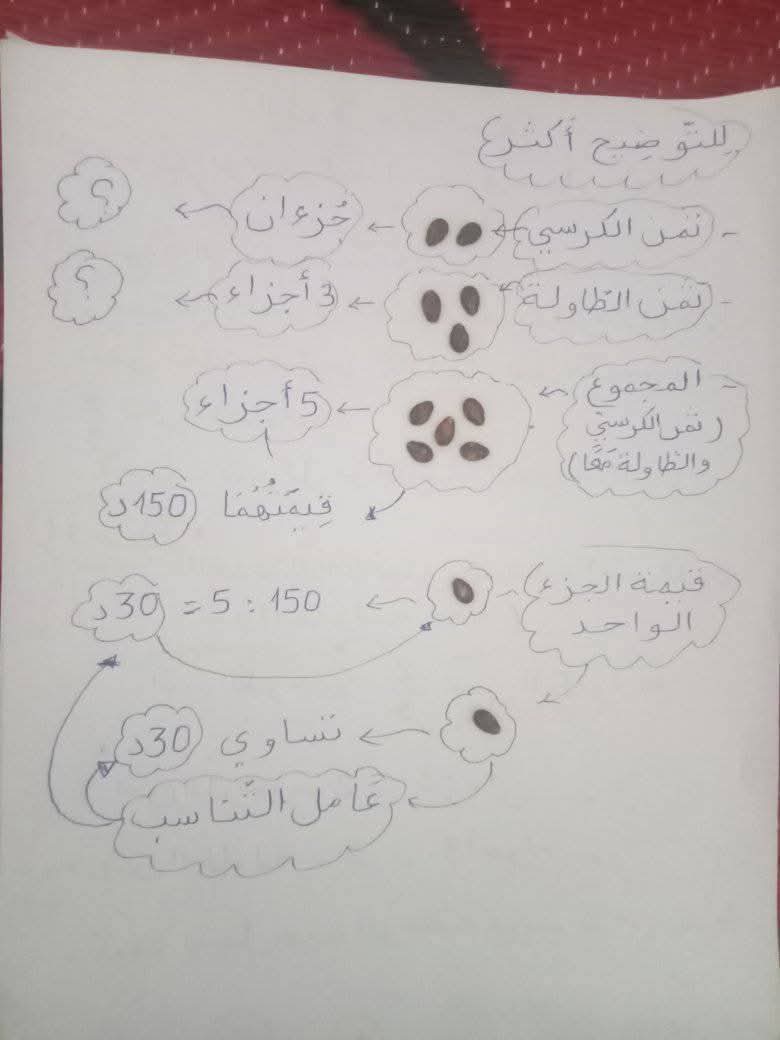 لِلتّوضِيح أكثر
- ثمن الكرسي ← ← جُزءان ← ؟
- ثمن الطّاولة ← ← 3 أجزاء ← ؟
- المجموع ← ← 5 أجزاء
(ثمن الكرسيّ
والطّاولة مَعًا)
قِيمَتُهُمَا 150د
قيمة الجزء
الواحد ← 150 : 5 = 30د
← تساوي 30د
عَامل التّناسب